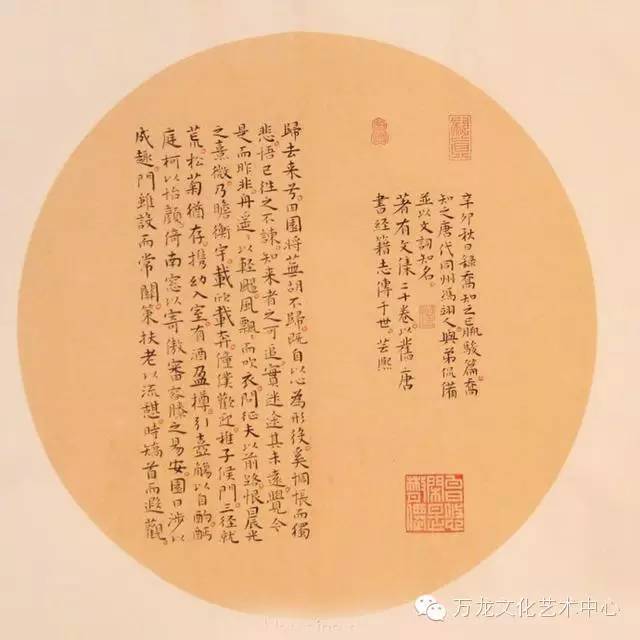 辛卯秋日錄喬知之巨駿篇。喬
知之唐代同州馮翊人與弟侃備
並以文詞知名。
著有文集二十卷。以舊唐
書經籍志傳于世。芸熙
歸去来兮。田園將蕪胡不歸。既自以心為形役。奚惆悵而獨
悲。悟已往之不諫。知来者之可追。實迷途其未遠。覺今
是而昨非。舟遥、以輕颺。風飄、而吹衣。問征夫以前路。恨晨光
之熹微。乃瞻衡宇。載欣載奔。僮僕歡迎。稚子候門。三徑就
荒。松菊猶存。携幼入室。有酒盈樽。引壺觴以自酌。眄
庭柯以怡顏。倚南窓以寄傲。審容膝之易安。園日涉以
成趣。門雖設而常關。策扶老以流憩。時矯首而遐觀。
万龙文化艺术中心